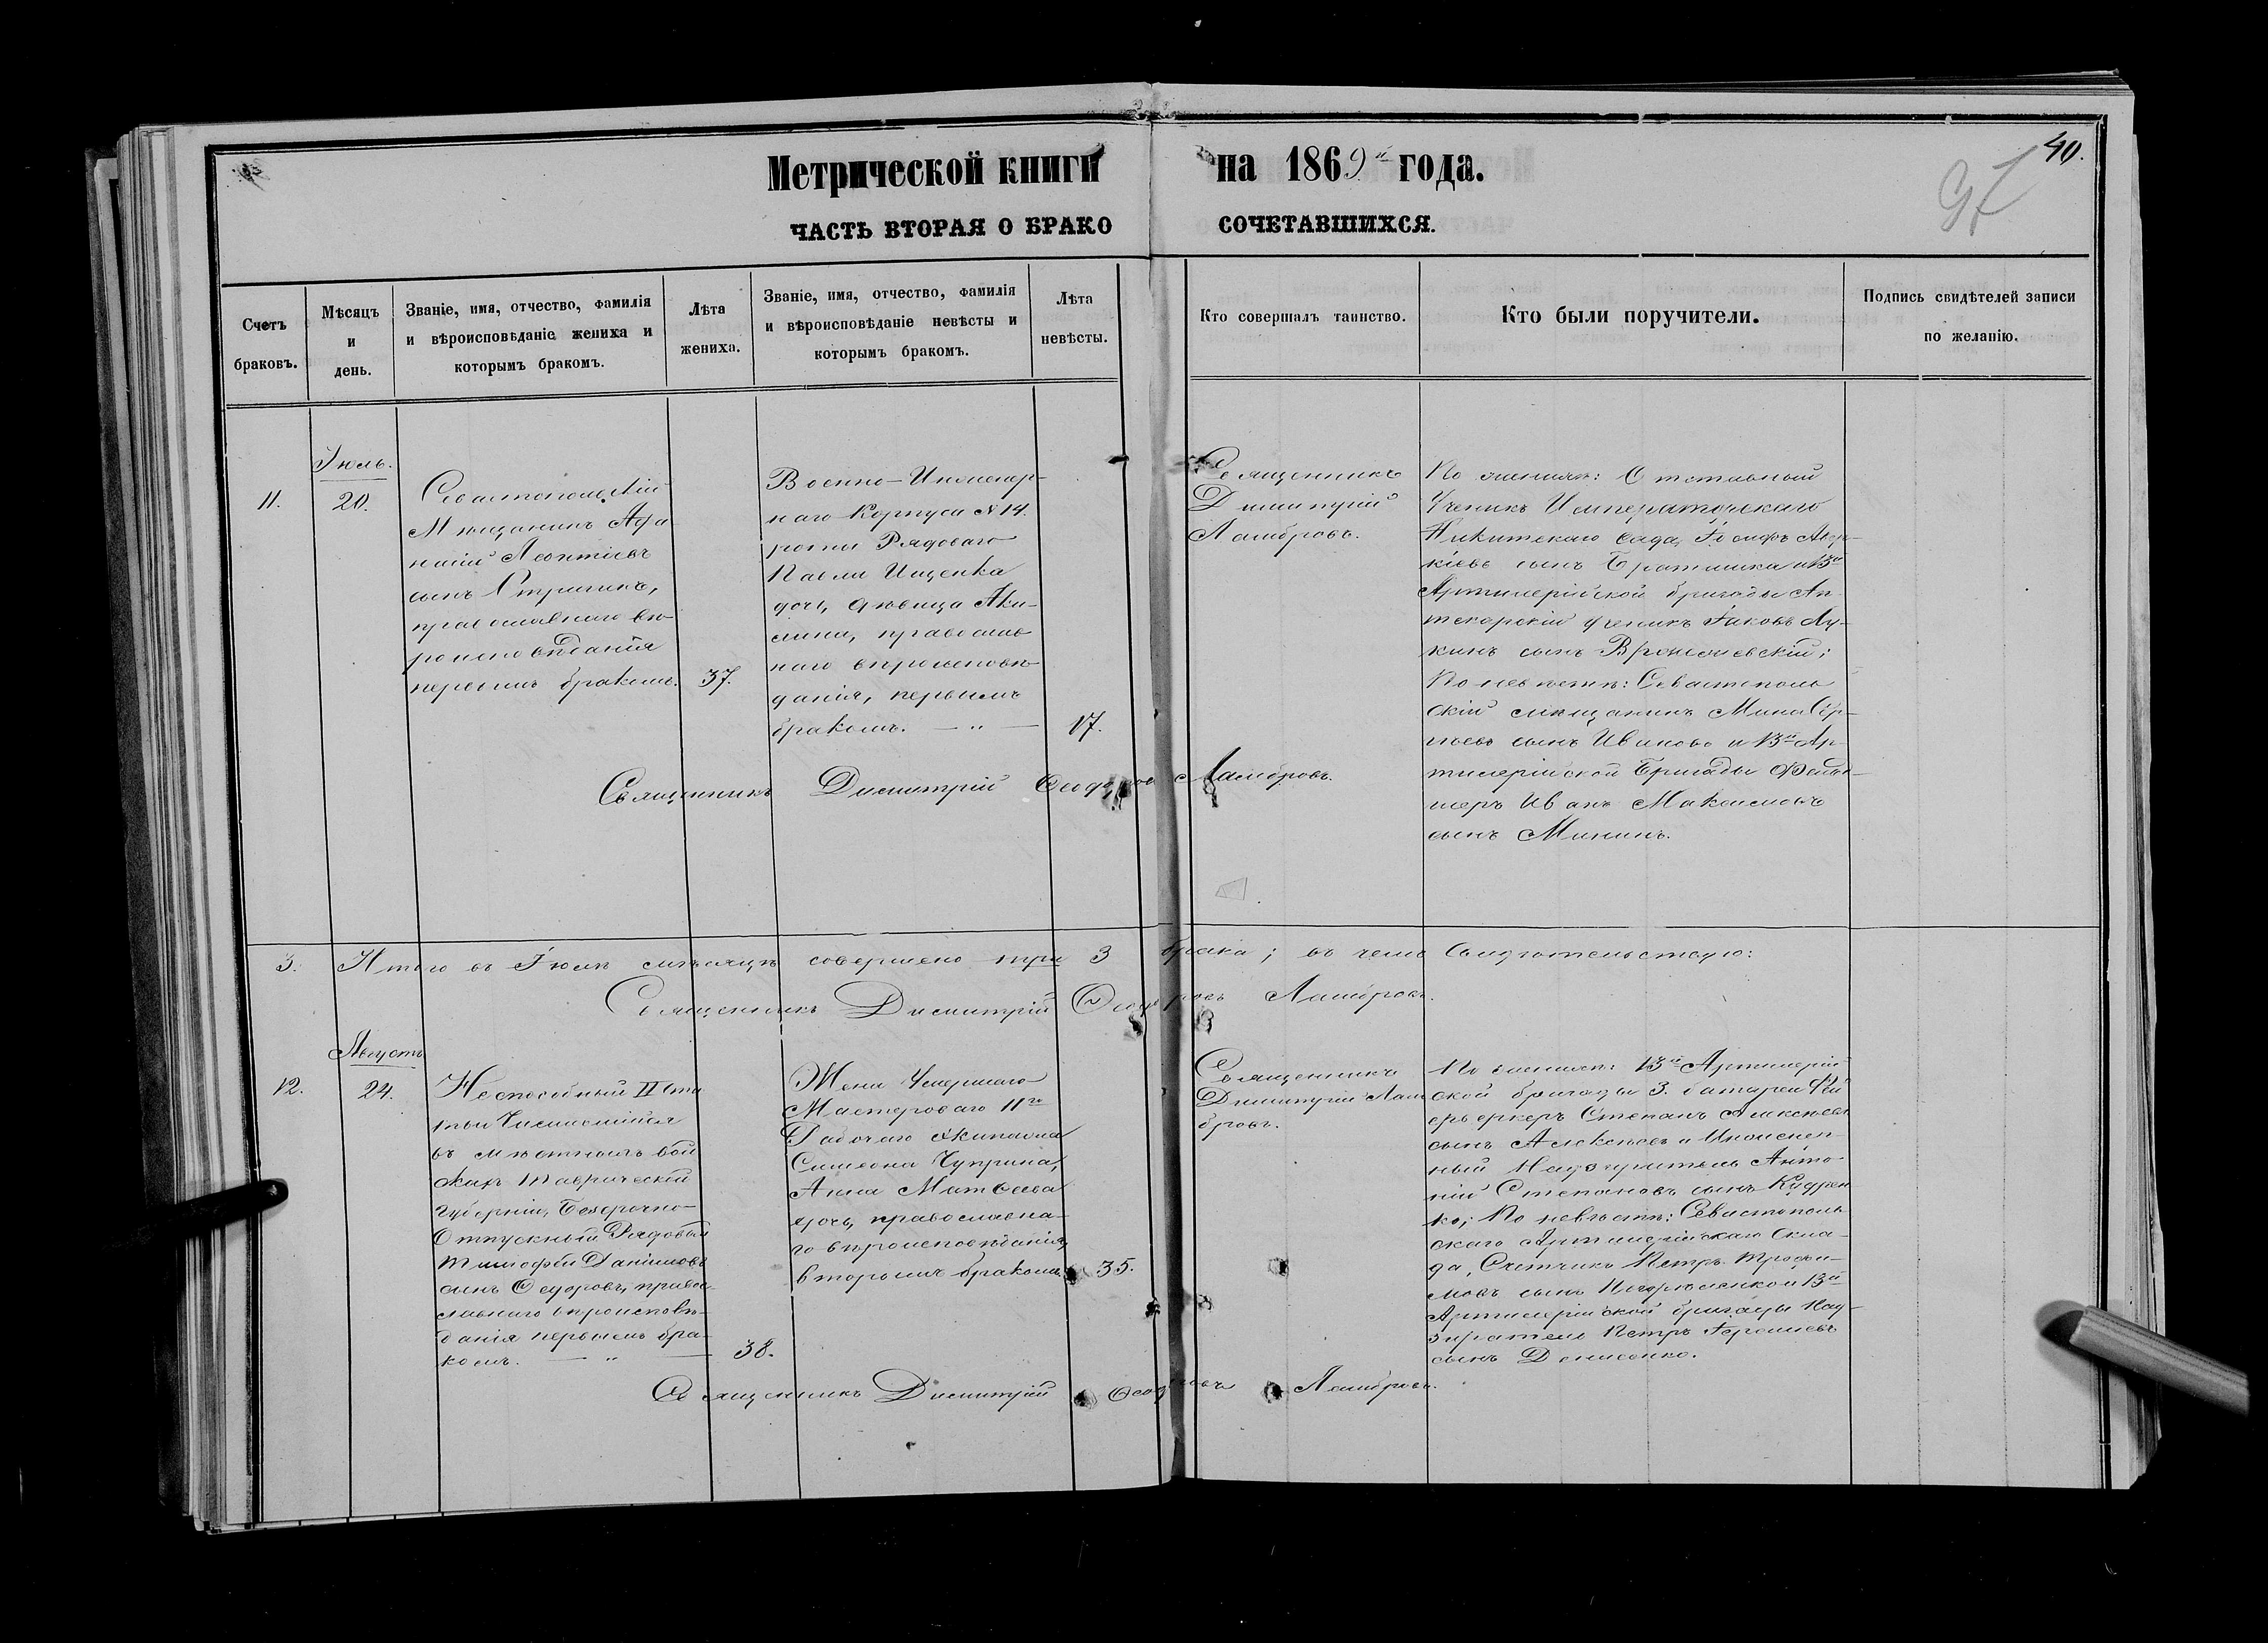 Метрической книги на 1869й года.
40.
97
ЧАСТЬ ВТОРАЯ О БРАКОСОЧЕТАВШИХСЯ.
Счетъ браковъ.
Мѣсяцъ и день.
Званіе, имя, отчество, фамилія
и вѣроисповѣданіе жениха и
которымъ бракомъ.
Лѣта
жениха.
Званіе, имя, отчество, фамилія
и вѣроисповѣданіе невѣсты и
которымъ бракомъ.
Лѣта
невѣсты.
Кто совершалъ таинство.
Кто были поручители.
Подпись свидѣтелей записи
по желанію.
11.
Іюль.
20.
Севастопольскій
Мѣщанинъ Афа
насій Леонтіевъ
сынъ Стригинъ,
православнаго вѣ-
роисповѣданія
первымъ бракомъ.
37.
Военно-Инженер-
наго Корпуса № 14.
роты Рядоваго
Павла Ищенка
дочь, дѣвица Аки-
лина, православ
наго вѣроисповѣ-
данія, первымъ
бракомъ. — „ —
17.
Священникъ
Димитрій
Ламбровъ.
По женихѣ: Отставный
Ученикъ Императорскаго
Никитскаго сада, Іосифъ
сынъ и 13й
Артилерійской бригады Ап-
текарскій ученикъ Іаковъ Лу-
кинъ сынъ
По невѣстѣ: Севастополь
скій мѣщанинъ Мина Сер-
гѣевъ сынъ Ивановъ и 13й Ар-
тилерійской Бригады Фельд-
шеръ Иванъ Максимовъ
сынъ Мининъ.
Священникъ Димитрій Ѳеодоровъ Ламбровъ.
3. Итого въ Іюлѣ мѣсяцѣ совершено три 3 брака; въ чемъ свидѣтельствую:
Священникъ Димитрій Ѳеодоровъ Ламбровъ.
12.
Августъ
24.
Неспособный II ста
тьи Числившійся
въ мѣстныхъ вой
скахъ Таврической
Губерніи, Безсрочно-
Отпускный Рядовый
Тимофей Даніиловъ
сынъ Ѳедоровъ, право-
славнаго вѣроисповѣ-
данія первымъ бра-
комъ. — „ —
38.
Жена Умершаго
Мастероваго 11го
Рабочаго Экипажа
Симеона Чуприна,
Анна Матѳеева
дочь, православна-
го вѣроисповѣданія,
вторымъ бракомъ
35.
Священникъ
Димитрій Лам
бровъ.
По женихѣ: 13й Артилерій
ской бригады 3. батареи Фей
ерверкеръ Степанъ Алексѣевъ
сынъ Алексѣевъ и Инженер-
ный Надзиратель Анто-
ній Степановъ сынъ Кудрен
ко; По невѣстѣ: Севастополь
скаго Артилерійскаго Скла-
да, Счетчикъ Петръ Трофи-
мовъ сынъ и 13й
Артилерійской бригады Над-
зиратель Петръ
сынъ Денисенко.
Священникъ Димитрій Ѳеодоровъ Ламбровъ.